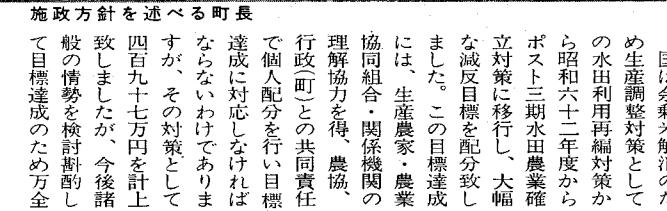 施政方針を述べる町長
国は余剰米解消のた
め生産調整対策として
の水田利用再編対策か
ら昭和六十二年度から
ポスト三期水田農業確
立対策に移行し、大幅
な減反目標を配分致し
ました。この目標達成
には、生産農家・農業
協同組合・関係機関の
理解協力を得、農協、
行政(町)との共同責任
で個人配分を行い目標
達成に対応しなければ
ならないわけでありま
すが、その対策として
四百九十七万円を計上
致しましたが、今後諸
般の情勢を検討斟酌し
て目標達成のため万全